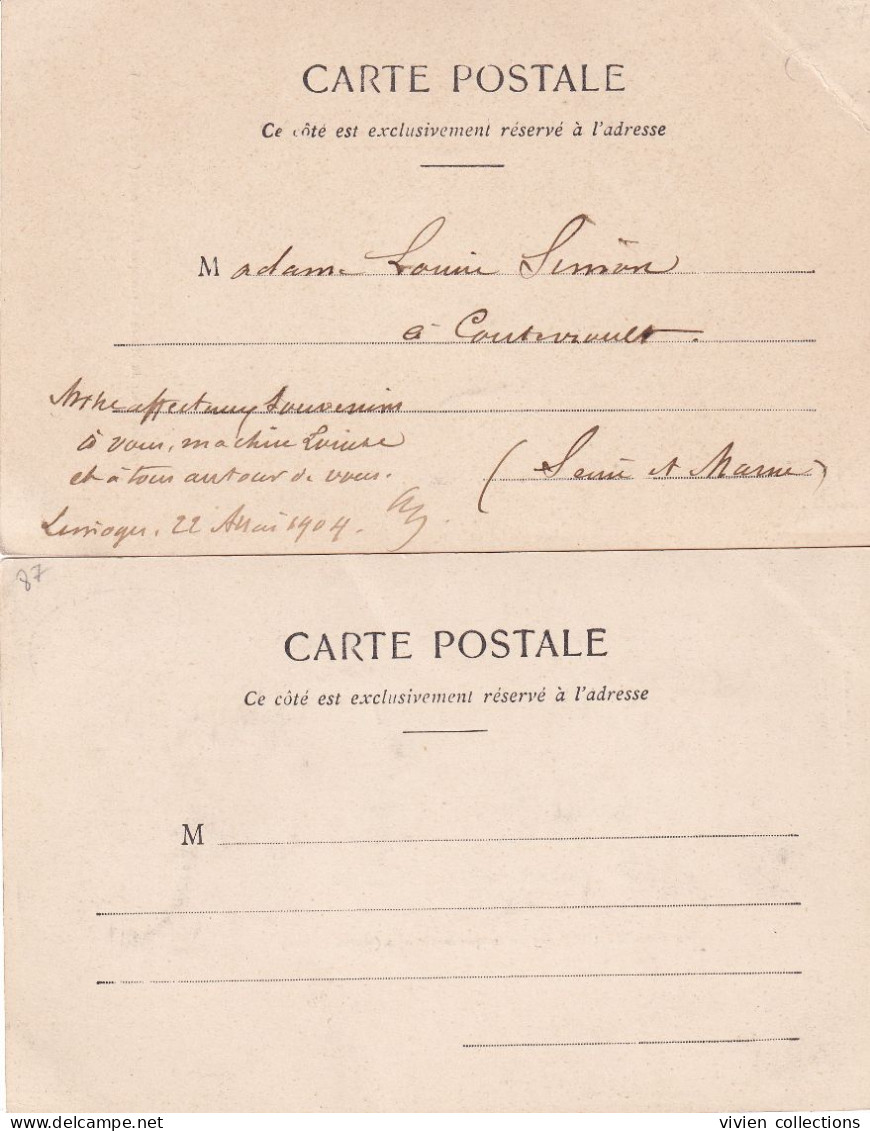 CARTE POSTALE
Ce côté est exclusivement réservé à l'adresse
Madame Louise Simon
à Coutevroult.
Notre affectueux souvenir
à vous, ma chère Louise
et à tous autour de vous.
(Seine et Marne)
Limoges, 22 Mai 1904.
87
CARTE POSTALE
Ce côté est exclusivement réservé à l'adresse
M
vivien collections